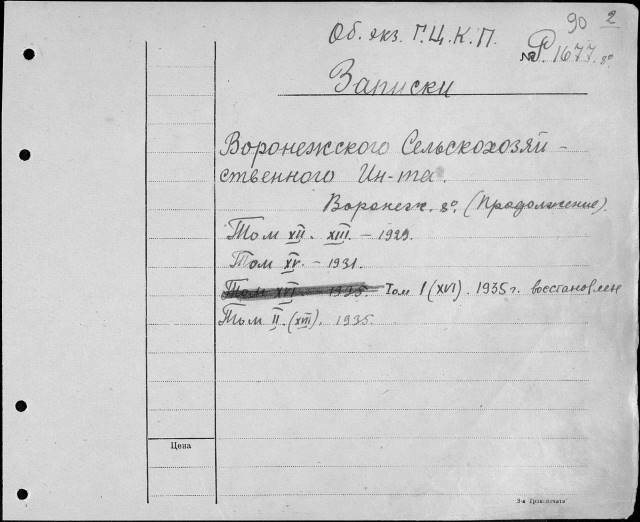 90 2
Об. экз. Г.Ц.К.П.
№ Р. 1677. 8º
Записки
Воронежского Сельскохозяй-
ственного Ин-та.
Воронеж. 8º. (Продолжение).
Том XII. XIII. – 1929.
Том XV. – 1931.
Том XVI – 1935. Том I (XVI). 1935 г. восстановлен
Том II. (XVII). 1935.
Цена